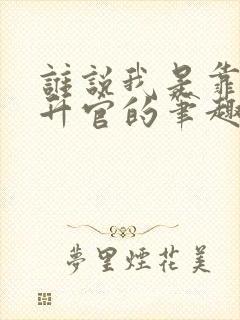 誰說我是靠
升官的筆趣
夢里煙花美